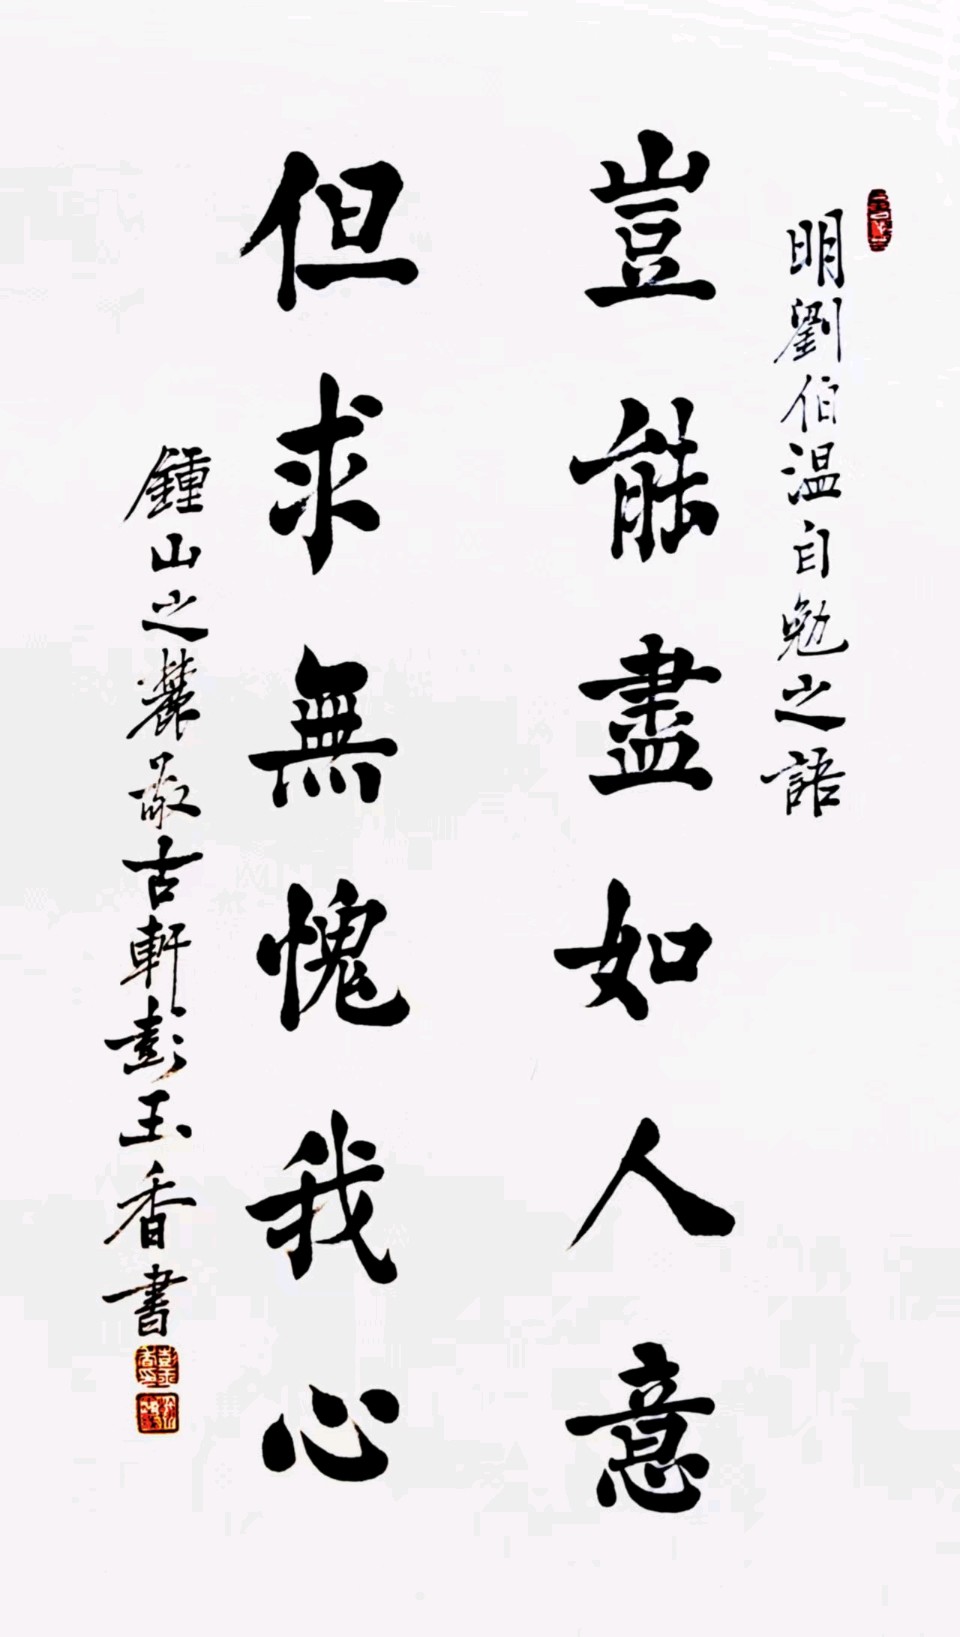 明劉伯温自勉之語
豈能盡如人意
但求無愧我心
鍾山之麓敬古軒彭玉香書